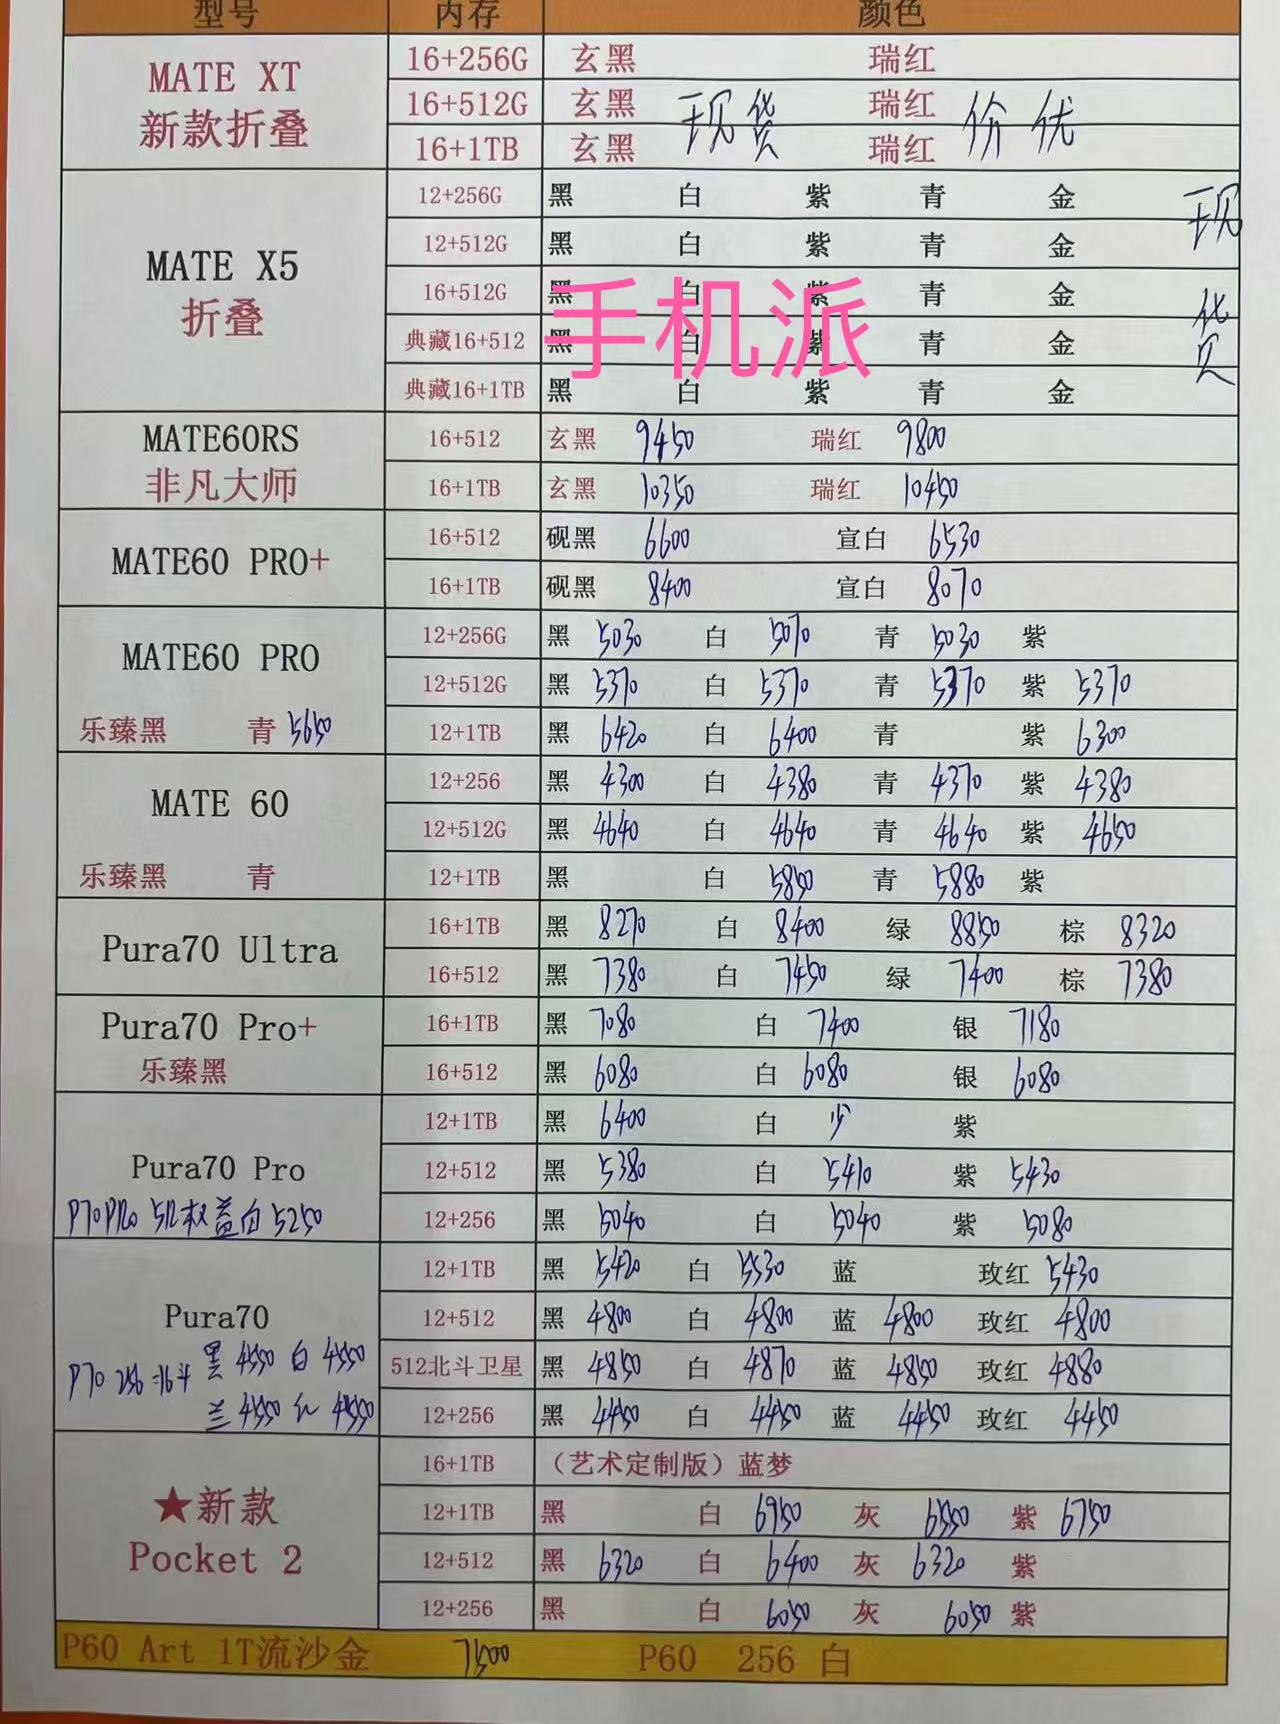 型号 内存 颜色
MATE XT 新款折叠
16+256G 玄黑 瑞红
16+512G 玄黑 现货 瑞红 价优
16+1TB 玄黑 瑞红
MATE X5 折叠 现货
12+256G 黑 白 紫 青 金
12+512G 黑 白 紫 青 金
16+512G 黑 白 紫 青 金
典藏16+512 黑 白 紫 青 金
典藏16+1TB 黑 白 紫 青 金
手机派
MATE60RS 非凡大师
16+512 玄黑 9450 瑞红 9800
16+1TB 玄黑 10350 瑞红 10450
MATE60 PRO+
16+512 砚黑 6600 宣白 6530
16+1TB 砚黑 8400 宣白 8070
MATE60 PRO
乐臻黑 青 5650
12+256G 黑 5030 白 5070 青 5030 紫
12+512G 黑 5370 白 5370 青 5370 紫 5370
12+1TB 黑 6420 白 6400 青 紫 6300
MATE 60
乐臻黑 青
12+256 黑 4300 白 4380 青 4370 紫 4380
12+512G 黑 4640 白 4640 青 4640 紫 4650
12+1TB 黑 白 5850 青 5880 紫
Pura70 Ultra
16+1TB 黑 8270 白 8400 绿 8850 棕 8320
16+512 黑 7380 白 7450 绿 7400 棕 7380
Pura70 Pro+
乐臻黑
16+1TB 黑 7080 白 7400 银 7180
16+512 黑 6080 白 6080 银 6080
Pura70 Pro
P70PRO 512权益白5250
12+1TB 黑 6400 白 少 紫
12+512 黑 5380 白 5410 紫 5430
12+256 黑 5040 白 5040 紫 5080
Pura70
P70 256北斗 黑 4550 白 4550
兰 4550 红 4550
12+1TB 黑 5420 白 5530 蓝 玫红 5430
12+512 黑 4800 白 4800 蓝 4800 玫红 4800
512北斗卫星 黑 4850 白 4870 蓝 4850 玫红 4880
12+256 黑 4450 白 4450 蓝 4450 玫红 4450
★新款 Pocket 2
16+1TB （艺术定制版）蓝梦
12+1TB 黑 白 6950 灰 6550 紫 6750
12+512 黑 6320 白 6400 灰 6320 紫
12+256 黑 白 6050 灰 6050 紫
P60 Art 1T流沙金 7500 P60 256 白